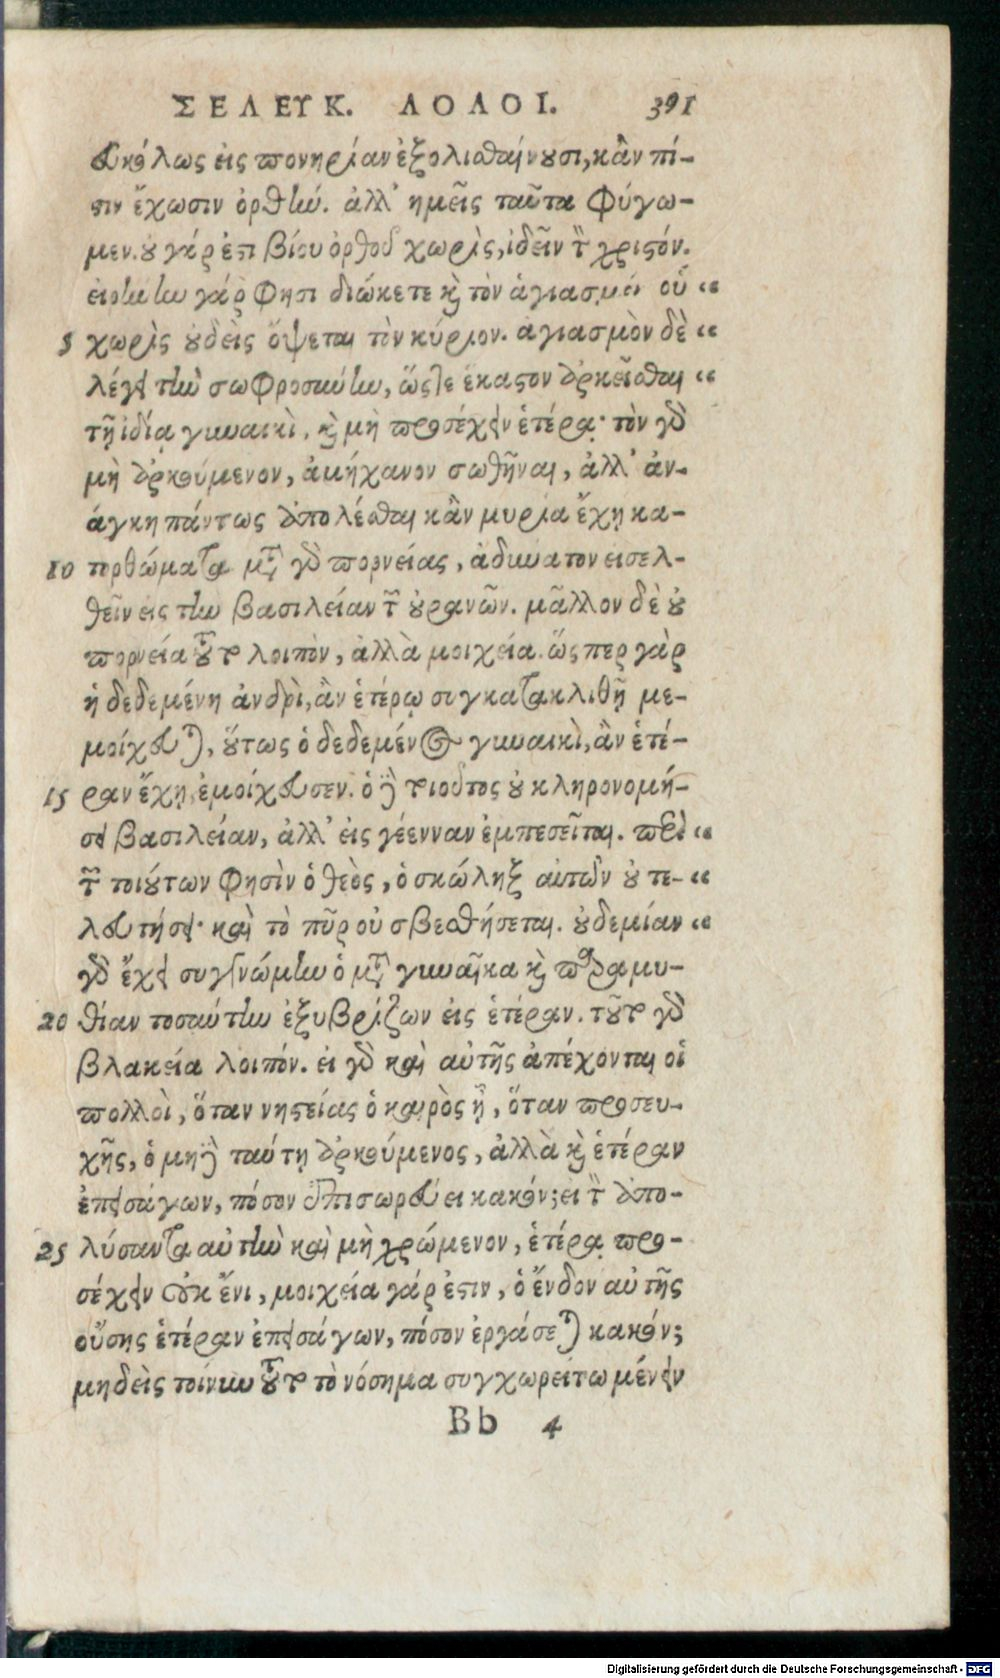 ΣΕΛΕΥΚ. ΛΟΛΟΙ. 391
ευκόλως εἰς πονηρίαν ἐξολισθαίνουσι, κἂν πί-
στιν ἔχωσιν ὀρθήν. ἀλλ' ἡμεῖς ταῦτα φύγω-
μεν. οὐ γάρ ἐστι βίου ὀρθοῦ χωρὶς, ἰδεῖν τὸν χριστόν.
εἰρήνην γάρ φησι διώκετε καὶ τὸν ἁγιασμόν οὗ “
5 χωρὶς οὐδεὶς ὄψεται τὸν κύριον. ἁγιασμὸν δὲ “
λέγει τὴν σωφροσύνην, ὥστε ἕκαστον ἀρκεῖσθαι “
τῇ ἰδίᾳ γυναικὶ, καὶ μὴ προσέχειν ἑτέρᾳ· τὸν γὰρ
μὴ ἀρκούμενον, ἀμήχανον σωθῆναι, ἀλλ' ἀν-
άγκη πάντως ἀπολέσθαι κἂν μυρία ἔχῃ κα-
10 τορθώματα μετὰ γὰρ πορνείας, ἀδύνατον εἰσελ-
θεῖν εἰς τὴν βασιλείαν τῶν οὐρανῶν. μᾶλλον δὲ οὐ
πορνεία τοῦτο λοιπὸν, ἀλλὰ μοιχεία. ὥσπερ γὰρ
ἡ δεδεμένη ἀνδρὶ, ἂν ἑτέρῳ συγκατακλιθῇ με-
μοίχευται, οὕτως ὁ δεδεμένος γυναικὶ, ἂν ἑτέ-
15 ραν ἔχῃ, ἐμοίχευσεν. ὁ δὲ τοιοῦτος οὐ κληρονομή-
σει βασιλείαν, ἀλλ' εἰς γέενναν ἐμπεσεῖται. περὶ “
τῶν τοιούτων φησὶν ὁ θεὸς, ὁ σκώληξ αὐτῶν οὐ τε- “
λευτήσει· καὶ τὸ πῦρ οὐ σβεσθήσεται. οὐδεμίαν “
γὰρ ἔχει συγγνώμην ὁ μετὰ γυναῖκα καὶ παραμυ-
20 θίαν τοσαύτην ἐξυβρίζων εἰς ἑτέραν. τοῦτο γὰρ
βλακεία λοιπόν. εἰ γὰρ καὶ αὐτῆς ἀπέχονται οἱ
πολλοὶ, ὅταν νηστείας ὁ καιρὸς ᾖ, ὅταν προσευ-
χῆς, ὁ μὴ δὲ ταύτῃ ἀρκούμενος, ἀλλὰ καὶ ἑτέραν
ἐπεισάγων, πόσον ἐπισωρεύει κακόν; εἰ τὸν ἀπο-
25 λύσαντα αὐτὴν καὶ μὴ χρώμενον, ἑτέρᾳ προ-
σέχειν οὐκ ἔνι, μοιχεία γάρ ἐστιν, ὁ ἔνδον αὐτῆς
οὔσης ἑτέραν ἐπεισάγων, πόσον ἐργάσεται κακόν;
μηδεὶς τοίνυν τοῦτο τὸ νόσημα συγχωρείτω μένειν
Bb 4
Digitalisierung gefördert durch die Deutsche Forschungsgemeinschaft - DFG